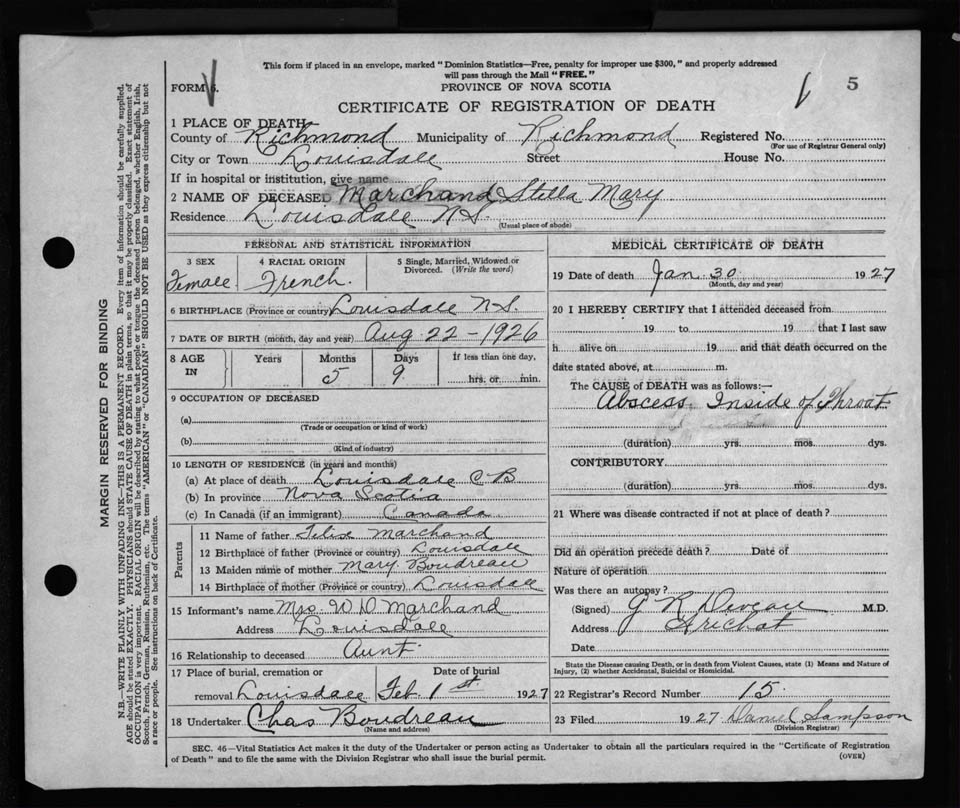 This form if placed in an envelope, marked "Dominion Statistics—Free, penalty for improper use $300," and properly addressed
will pass through the Mail "FREE."
FORM 6. PROVINCE OF NOVA SCOTIA 5
CERTIFICATE OF REGISTRATION OF DEATH
1 PLACE OF DEATH
County of Richmond Municipality of Richmond Registered No.
(For use of Registrar General only)
City or Town Louisdale Street House No.
If in hospital or institution, give name
2 NAME OF DECEASED Marchand Stella Mary
Residence Louisdale N S.
(Usual place of abode)
PERSONAL AND STATISTICAL INFORMATION
3 SEX 4 RACIAL ORIGIN 5 Single, Married, Widowed or Divorced. (Write the word)
Female. French.
6 BIRTHPLACE (Province or country) Louisdale N S.
7 DATE OF BIRTH (month, day and year) Aug 22 - 1926
8 AGE IN Years Months Days If less than one day,
5 9. hrs. or min.
9 OCCUPATION OF DECEASED
(a)
(Trade or occupation or kind of work)
(b)
(Kind of industry)
10 LENGTH OF RESIDENCE (in years and months)
(a) At place of death Louisdale C B
(b) In province Nova Scotia
(c) In Canada (if an immigrant) Canada
Parents
11 Name of father Felix Marchand
12 Birthplace of father (Province or country) Louisdale
13 Maiden name of mother Mary Boudreau
14 Birthplace of mother (Province or country) Louisdale
15 Informant's name Mrs. W D Marchand
Address Louisdale
16 Relationship to deceased Aunt
17 Place of burial, cremation or Date of burial
removal Louisdale Feb 1st 1927
18 Undertaker Chas Boudreau
(Name and address)
MEDICAL CERTIFICATE OF DEATH
19 Date of death Jan 30 1927
(Month, day and year)
20 I HEREBY CERTIFY that I attended deceased from
19 to 19 that I last saw
h alive on 19 and that death occurred on the
date stated above, at m.
The CAUSE of DEATH was as follows:—
Abscess, Inside of Throat
(duration) yrs. mos. dys.
CONTRIBUTORY
(duration) yrs. mos. dys.
21 Where was disease contracted if not at place of death?
Did an operation precede death? Date of
Nature of operation
Was there an autopsy?
(Signed) G R Deveau M.D.
Address Arichat
Date
State the Disease causing Death, or in death from Violent Causes, state (1) Means and Nature of
Injury, (2) whether Accidental, Suicidal or Homicidal.
22 Registrar's Record Number 15.
23 Filed 1927 Daniel Sampson
(Division Registrar)
SEC. 46—Vital Statistics Act makes it the duty of the Undertaker or person acting as Undertaker to obtain all the particulars required in the "Certificate of Registration
of Death" and to file the same with the Division Registrar who shall issue the burial permit.
(OVER)
MARGIN RESERVED FOR BINDING
N.B.—WRITE PLAINLY WITH UNFADING INK—THIS IS A PERMANENT RECORD. Every item of information should be carefully supplied.
AGE should be stated EXACTLY. PHYSICIANS should STATE CAUSE OF DEATH in plain terms, so that it may be properly classified. Exact statement of
OCCUPATION is very important. RACIAL ORIGIN will be described by stating to what people or tongue the deceased person belonged, whether English, Irish,
Scotch, French, German, Russian, Ruthenian, etc. The terms "AMERICAN" or "CANADIAN" SHOULD NOT BE USED as they express citizenship but not
a race or people. See instructions on back of Certificate.